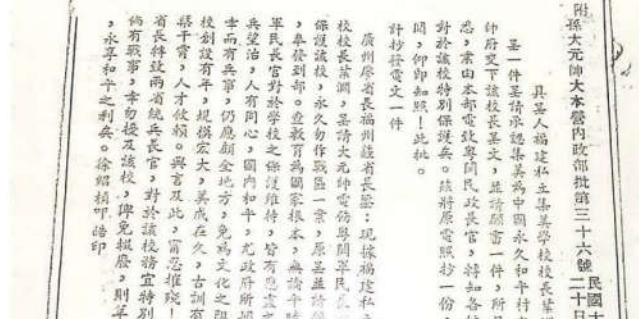 附孫大元帥大本營內政部批第三十六號
民國十
二十日
具呈人福建私立集美學校校長葉淵
呈一件呈請承認集美為中國永久和平村由
帥府交下該校長呈文，並請願書一件，所
悉，業由本部電致粵閩民政長官，轉知各
對於該校特別保護矣。茲將原電照抄一份，
閱，仰卽知照！此批。
計抄發電文一件
廣州廖省長福州薩省長鑒：現據福建私立
校校長葉淵，呈請大元帥電飭粵閩軍民長
保護該校，永久勿作戰區一案，原呈並請
，奉發到部。查教育為國家根本，無論平時
軍民長官對於學校之保護維持，皆有應盡之
兵望治，人有同心，國內和平，尤政府所
幸而有兵事，仍應顧全地方，免為文化之阻
校創設有年，規模宏大，美成在久，古訓有
槃干霄，人才攸賴。興言及此，甯忍摧殘！
省長轉致兩省統兵長官，對於該校務宜特別
倘有戰事，幸勿侵及該校，俾免輟廢，則莘
，永享和平之利矣。徐紹楨叩皓印